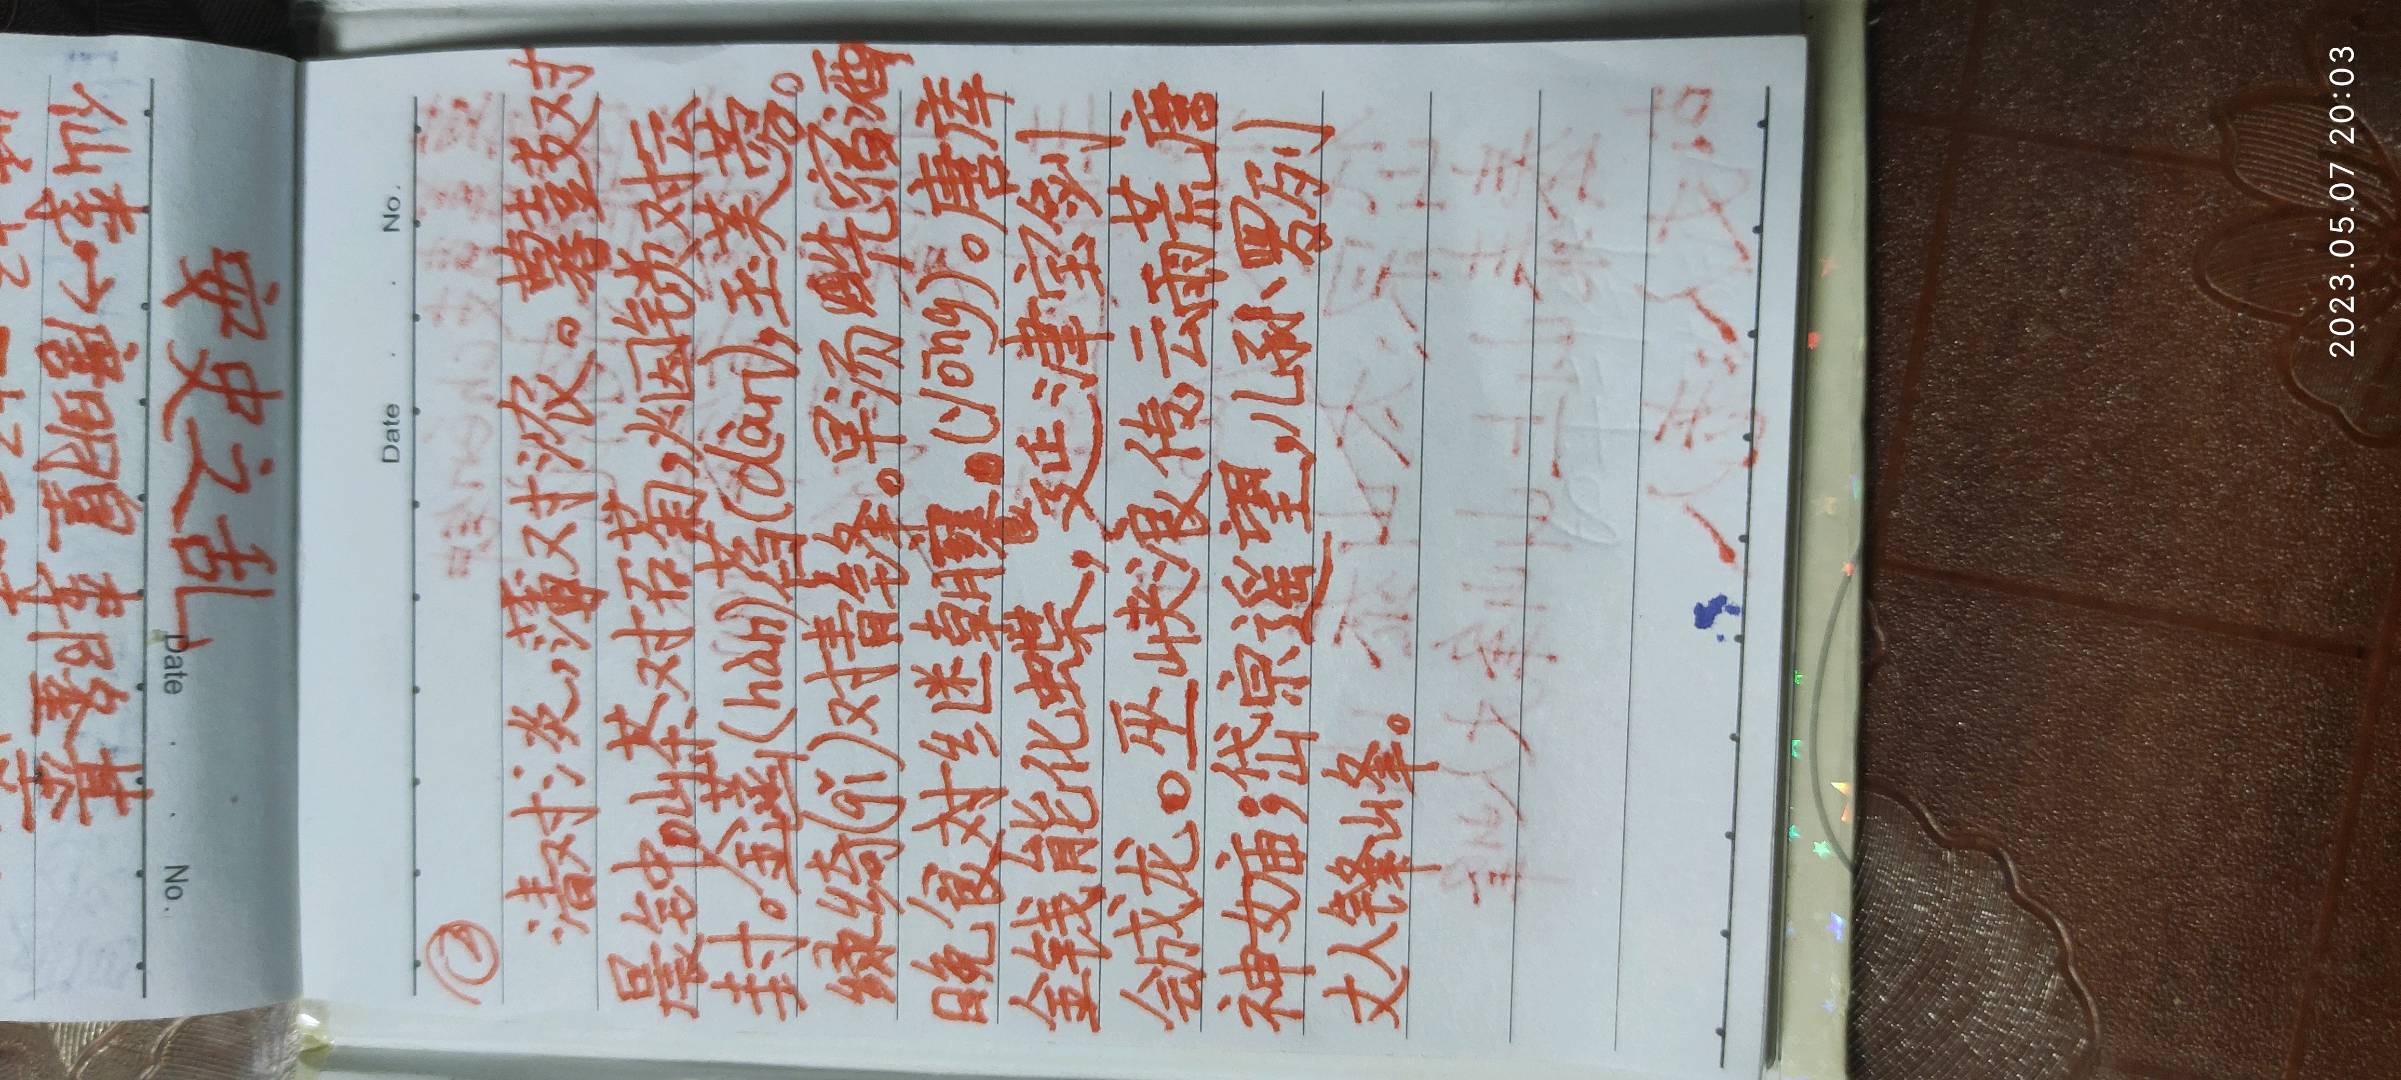 仙李→唐明皇 李隆基
安史之乱
Date . . No.
Date . . No.
②
清对淡,薄对浓。暮鼓对
晨钟。山茶对石菊,烟锁对云
封。金菡(hàn)萏(dàn),玉芙蓉。
绿绮(qǐ)对青锋。早汤先宿酒
晚食对继朝饔。(yōng)。唐库
金钱能化蝶,延津宝剑
会成龙。巫峡浪传,云雨荒唐
神女庙;岱宗遥望,儿孙罗列
丈人锋山峰。
2023.05.07 20:03